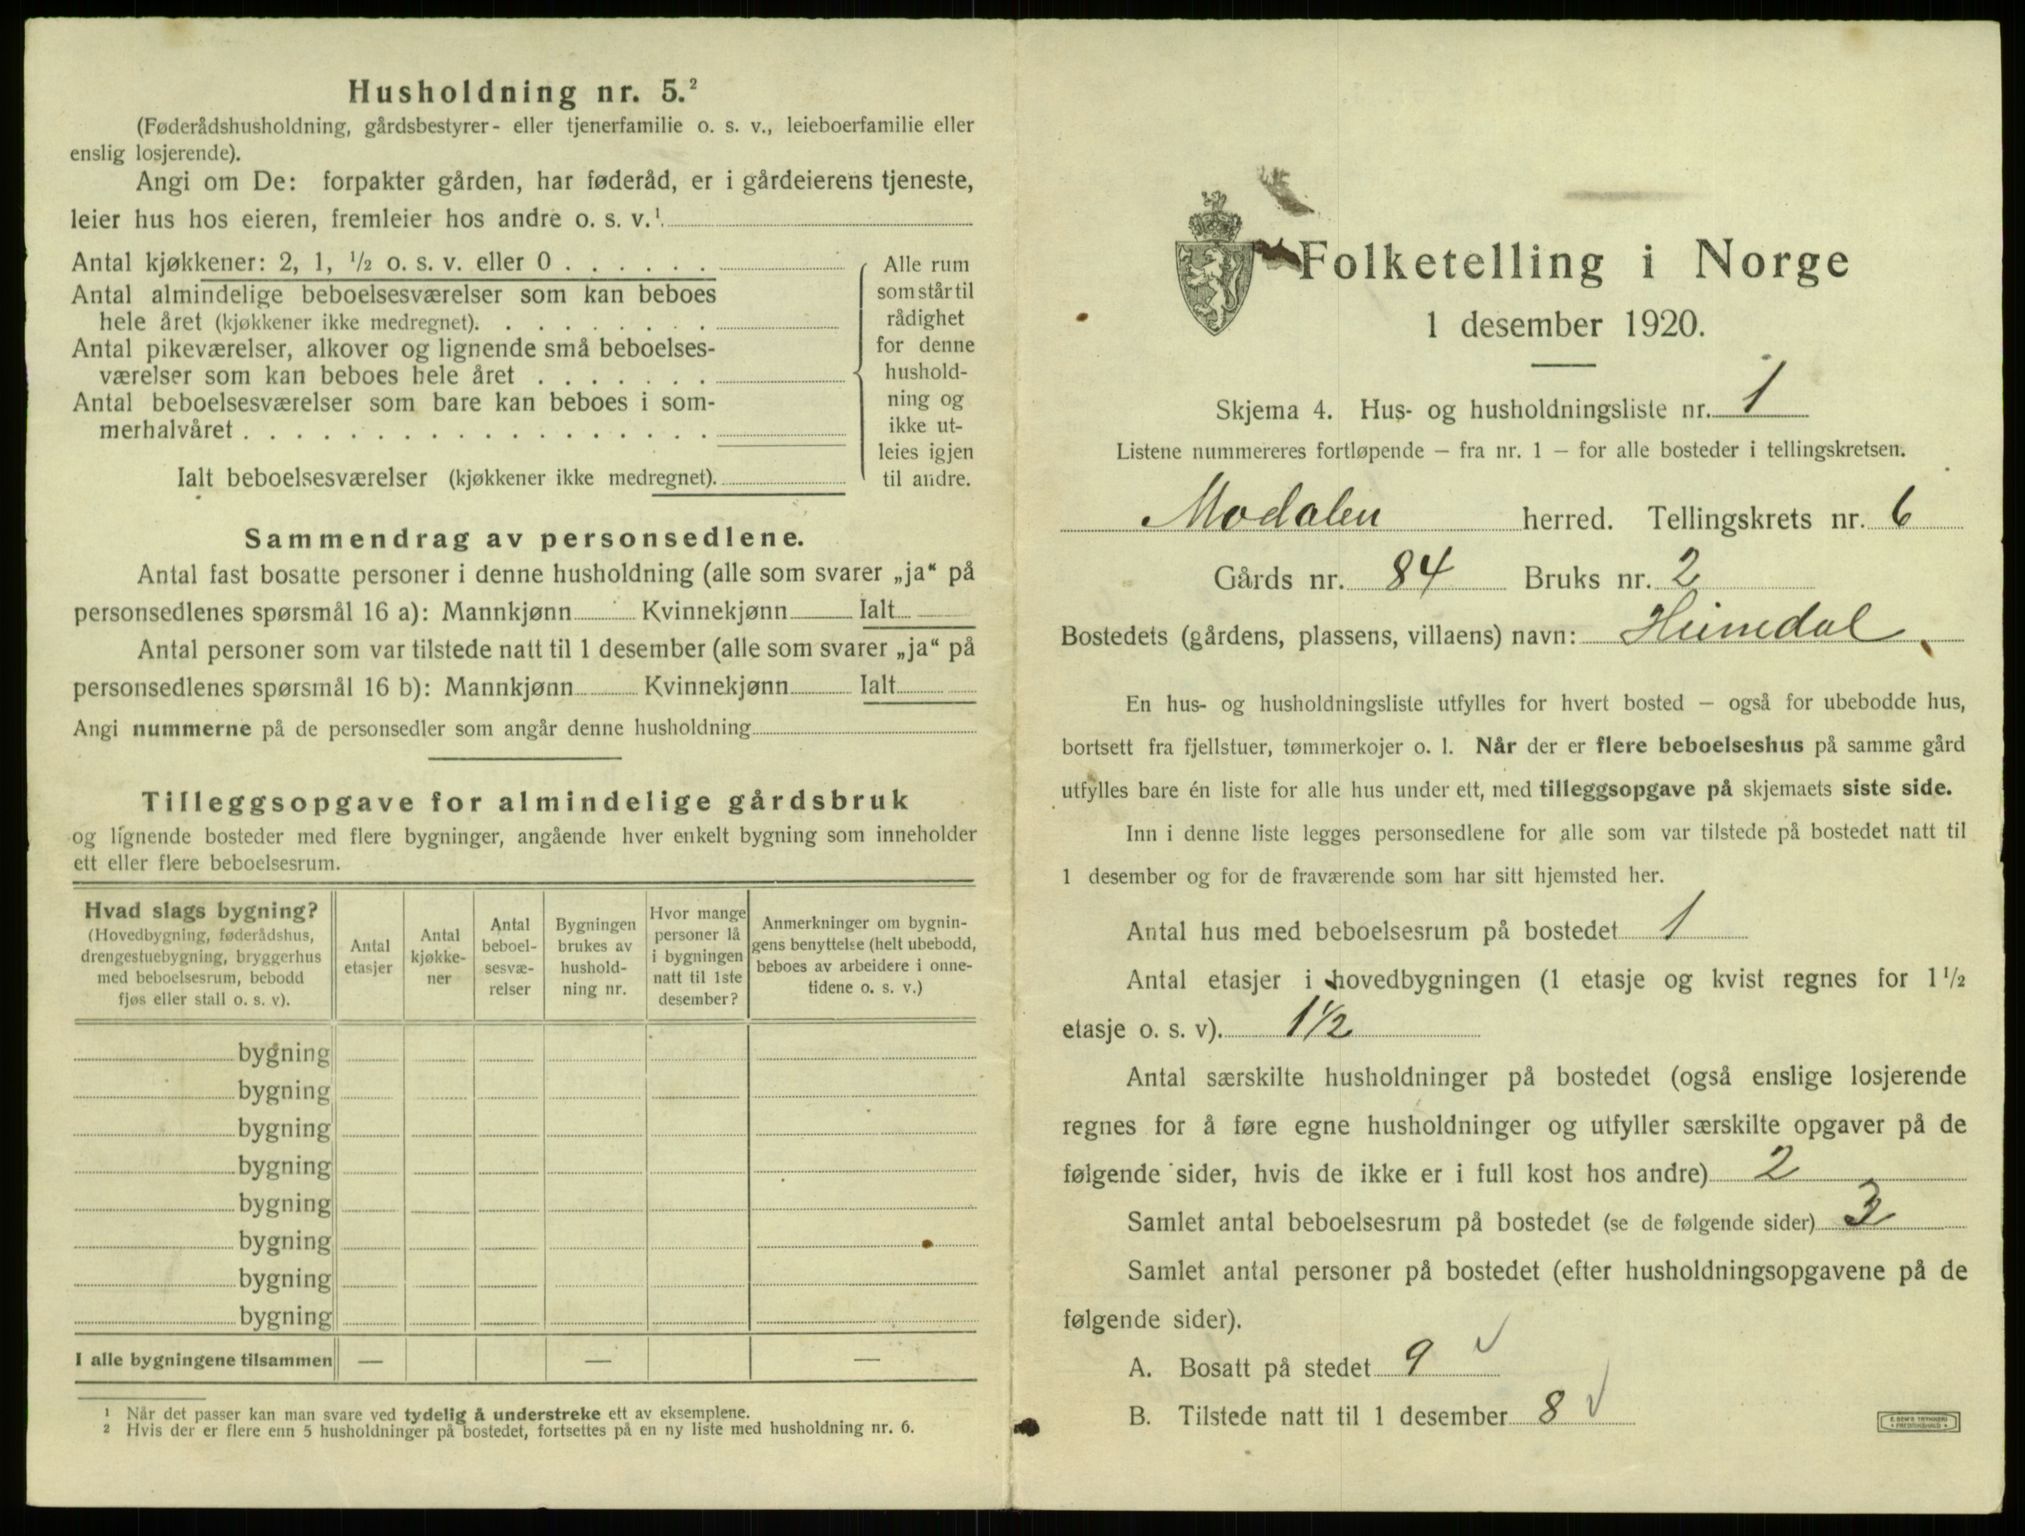 Husholdning nr. 5.²
(Føderådshusholdning, gårdsbestyrer- eller tjenerfamilie o. s. v., leieboerfamilie eller
enslig losjerende).
Angi om De: forpakter gården, har føderåd, er i gårdeierens tjeneste,
leier hus hos eieren, fremleier hos andre o. s. v.¹
Antal kjøkkener: 2, 1, ½ o. s. v. eller 0 . . . . . .
Antal almindelige beboelsesværelser som kan beboes
hele året (kjøkkener ikke medregnet). . . . . . . . .
Antal pikeværelser, alkover og lignende små beboelses-
værelser som kan beboes hele året . . . . . . .
Antal beboelsesværelser som bare kan beboes i som-
merhalvåret . . . . . . . . . . . . . . . . . .
Ialt beboelsesværelser (kjøkkener ikke medregnet).
Alle rum
som står til
rådighet
for denne
hushold-
ning og
ikke ut-
leies igjen
til andre.
Sammendrag av personsedlene.
Antal fast bosatte personer i denne husholdning (alle som svarer „ja“ på
personsedlenes spørsmål 16 a): Mannkjønn Kvinnekjønn Ialt
Antal personer som var tilstede natt til 1 desember (alle som svarer „ja“ på
personsedlenes spørsmål 16 b): Mannkjønn Kvinnekjønn Ialt
Angi nummerne på de personsedler som angår denne husholdning
Tilleggsopgave for almindelige gårdsbruk
og lignende bosteder med flere bygninger, angående hver enkelt bygning som inneholder
ett eller flere beboelsesrum.
Hvad slags bygning?
(Hovedbygning, føderådshus,
drengestuebygning, bryggerhus
med beboelsesrum, bebodd
fjøs eller stall o. s. v).
Antal
etasjer
Antal
kjøkke-
ner
Antal
beboel-
sesvæ-
relser
Bygningen
brukes av
hushold-
ning nr.
Hvor mange
personer lå
i bygningen
natt til 1ste
desember?
Anmerkninger om bygnin-
gens benyttelse (helt ubebodd,
beboes av arbeidere i onne-
tidene o. s. v.)
bygning
bygning
bygning
bygning
bygning
bygning
bygning
bygning
I alle bygningene tilsammen — — —
¹ Når det passer kan man svare ved tydelig å understreke ett av eksemplene.
² Hvis der er flere enn 5 husholdninger på bostedet, fortsettes på en ny liste med husholdning nr. 6.
Folketelling i Norge
1 desember 1920.
Skjema 4. Hus- og husholdningsliste nr. 1
Listene nummereres fortløpende — fra nr. 1 — for alle bosteder i tellingskretsen.
Modalen herred. Tellingskrets nr. 6
Gårds nr. 84 Bruks nr. 2
Bostedets (gårdens, plassens, villaens) navn: Heimdal
En hus- og husholdningsliste utfylles for hvert bosted — også for ubebodde hus,
bortsett fra fjellstuer, tømmerkojer o. l. Når der er flere beboelseshus på samme gård
utfylles bare én liste for alle hus under ett, med tilleggsopgave på skjemaets siste side.
Inn i denne liste legges personsedlene for alle som var tilstede på bostedet natt til
1 desember og for de fraværende som har sitt hjemsted her.
Antal hus med beboelsesrum på bostedet 1
Antal etasjer i hovedbygningen (1 etasje og kvist regnes for 1 ½
etasje o. s. v). 1½
Antal særskilte husholdninger på bostedet (også enslige losjerende
regnes for å føre egne husholdninger og utfyller særskilte opgaver på de
følgende sider, hvis de ikke er i full kost hos andre) 2
Samlet antal beboelsesrum på bostedet (se de følgende sider) 3
Samlet antal personer på bostedet (efter husholdningsopgavene på de
følgende sider).
A. Bosatt på stedet 9 ✓
B. Tilstede natt til 1 desember 8 ✓